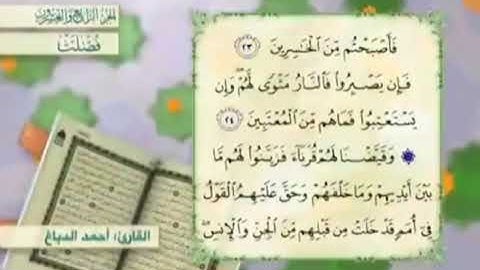 الجزء الرابع والعشرون
فصلت
فَأَصْبَحْتُم مِّنَ الْخَاسِرِينَ ٢٣
فَإِن يَصْبِرُوا فَالنَّارُ مَثْوًى لَّهُمْ وَإِن
يَسْتَعْتِبُوا فَمَا هُم مِّنَ الْمُعْتَبِينَ ٢٤
وَقَيَّضْنَا لَهُمْ قُرَنَاءَ فَزَيَّنُوا لَهُم مَّا
بَيْنَ أَيْدِيهِمْ وَمَا خَلْفَهُمْ وَحَقَّ عَلَيْهِمُ الْقَوْلُ
فِي أُمَمٍ قَدْ خَلَتْ مِن قَبْلِهِم مِّنَ الْجِنِّ وَالْإِنسِ
القارئ: أحمد الدباغ